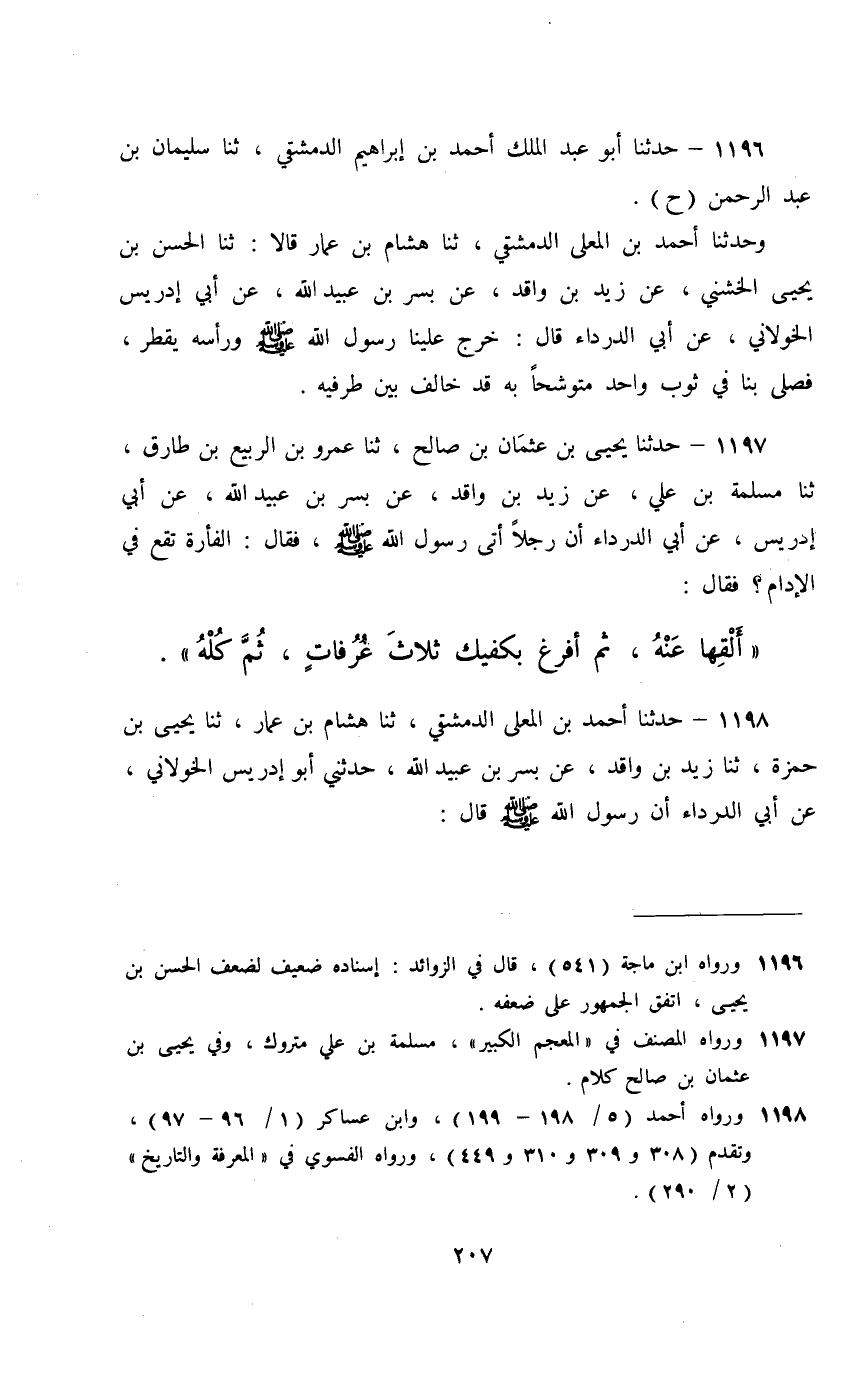 ١١٩٦ – حدثنا أبو عبد الملك أحمد بن إبراهيم الدمشقي ، ثنا سليمان بن
عبد الرحمن (ح) .
وحدثنا أحمد بن المعلى الدمشقي ، ثنا هشام بن عمار قالا : ثنا الحسن بن
يحيى الخشني ، عن زيد بن واقد ، عن بسر بن عبيد الله ، عن أبي إدريس
الخولاني ، عن أبي الدرداء قال : خرج علينا رسول الله ﷺ ورأسه يقطر ،
فصلى بنا في ثوب واحد متوشحاً به قد خالف بين طرفيه .
١١٩٧ – حدثنا يحيى بن عثمَان بن صالح ، ثنا عمرو بن الربيع بن طارق ،
ثنا مسلمة بن علي ، عن زيد بن واقد ، عن بسر بن عبيد الله ، عن أبي
إدريس ، عن أبي الدرداء أن رجلاً أتى رسول الله ﷺ ، فقال : الفأرة تقع في
الإدام؟ فقال :
« أَلْقِها عَنْهُ ، ثم أفرغ بكفيك ثلاثَ غُرُفاتٍ ، ثُمَّ كُلْهُ » .
١١٩٨ – حدثنا أحمد بن المعلى الدمشقي ، ثنا هشام بن عمار ، ثنا يحيى بن
حمزة ، ثنا زيد بن واقد ، عن بسر بن عبيد الله ، حدثني أبو إدريس الخولاني ،
عن أبي الدرداء أن رسول الله ﷺ قال :
١١٩٦ ورواه ابن ماجة (٥٤١) ، قال في الزوائد : إسناده ضعيف لضعف الحسن بن
يحيى ، اتفق الجمهور على ضعفه .
١١٩٧ ورواه المصنف في «المعجم الكبير» ، مسلمة بن علي متروك ، وفي يحيى بن
عثمان بن صالح كلام .
١١٩٨ ورواه أحمد (٥/ ١٩٨ – ١٩٩) ، وابن عساكر (١/ ٩٦ – ٩٧) ،
وتقدم (٣٠٨ و ٣٠٩ و ٣١٠ و ٤٤٩) ، ورواه الفسوي في «المعرفة والتاريخ»
(٢/ ٢٩٠) .
٢٠٧